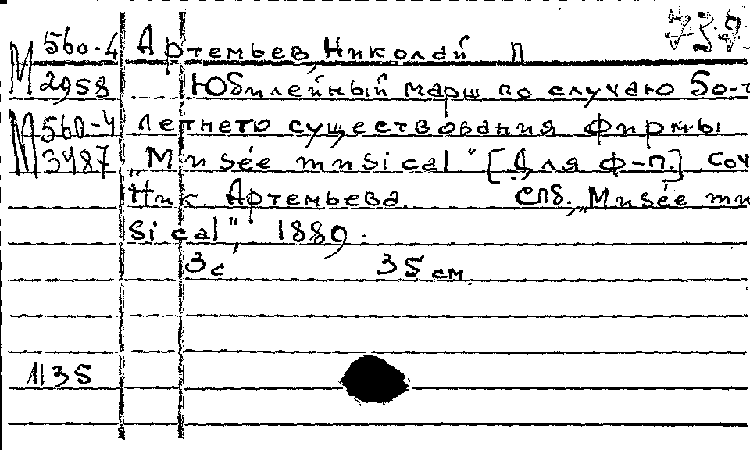 739
М 560-4 Артемьев, Николай П
2958 Юбилейный марш по случаю 50-
М 560-4 летнего существования фирмы
3487 „Musée musical" [Для ф-п.] Соч
Ник Артемьева. СПб. „Musée mu
sical", 1889.
3с 35 см.
1135